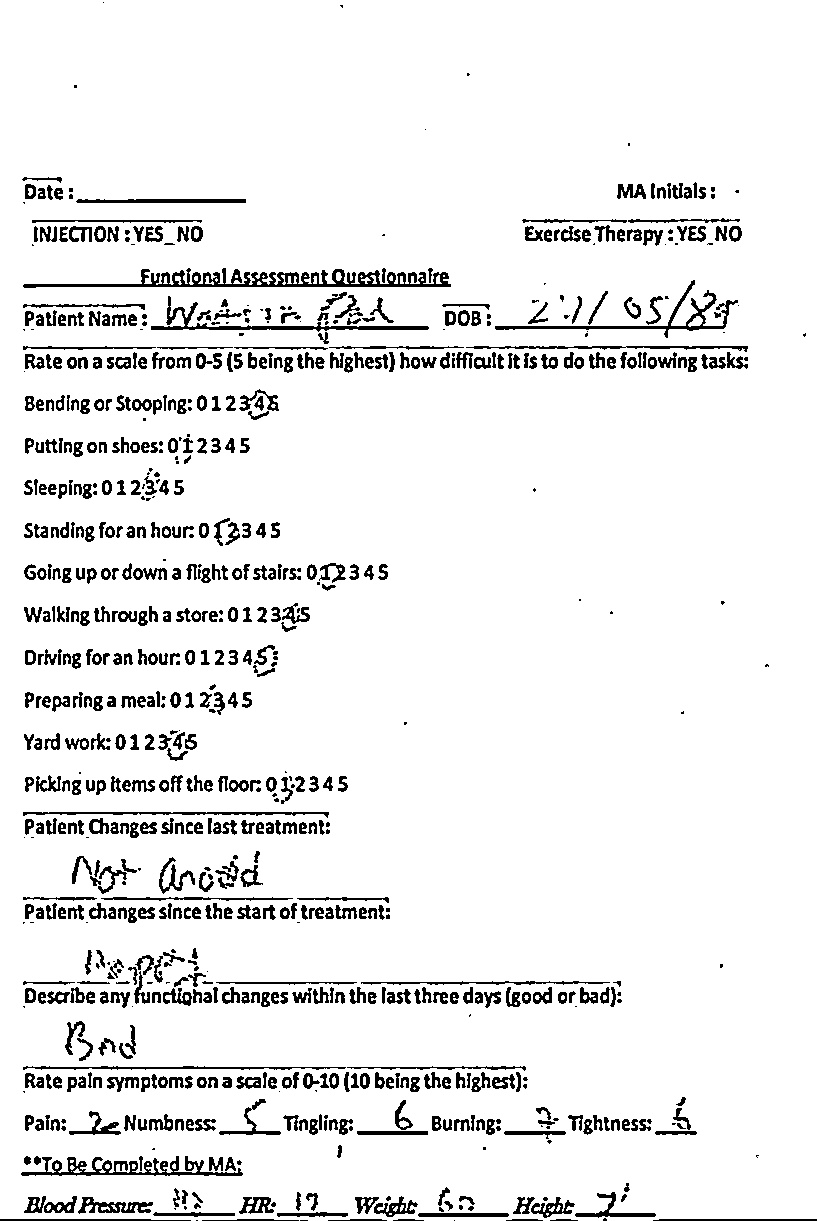 Date :
MA Initials :
INJECTION : YES_NO
Exercise Therapy : YES_NO
Functional Assessment Questionnaire
Patient Name : DOB : 05/
Rate on a scale from 0-5 (5 being the highest) how difficult it is to do the following tasks:
Bending or Stooping: 0 1 2 3 4 5
Putting on shoes: 0 1 2 3 4 5
Sleeping: 0 1 2 3 4 5
Standing for an hour: 0 1 2 3 4 5
Going up or down a flight of stairs: 0 1 2 3 4 5
Walking through a store: 0 1 2 3 4 5
Driving for an hour: 0 1 2 3 4 5
Preparing a meal: 0 1 2 3 4 5
Yard work: 0 1 2 3 4 5
Picking up items off the floor: 0 1 2 3 4 5
Patient Changes since last treatment:
Not
Patient changes since the start of treatment:
Describe any functional changes within the last three days (good or bad):
Bad
Rate pain symptoms on a scale of 0-10 (10 being the highest):
Pain: 2 Numbness: 5 Tingling: 6 Burning: 7 Tightness:
**To Be Completed by MA:
Blood Pressure: HR: Weight: Height: